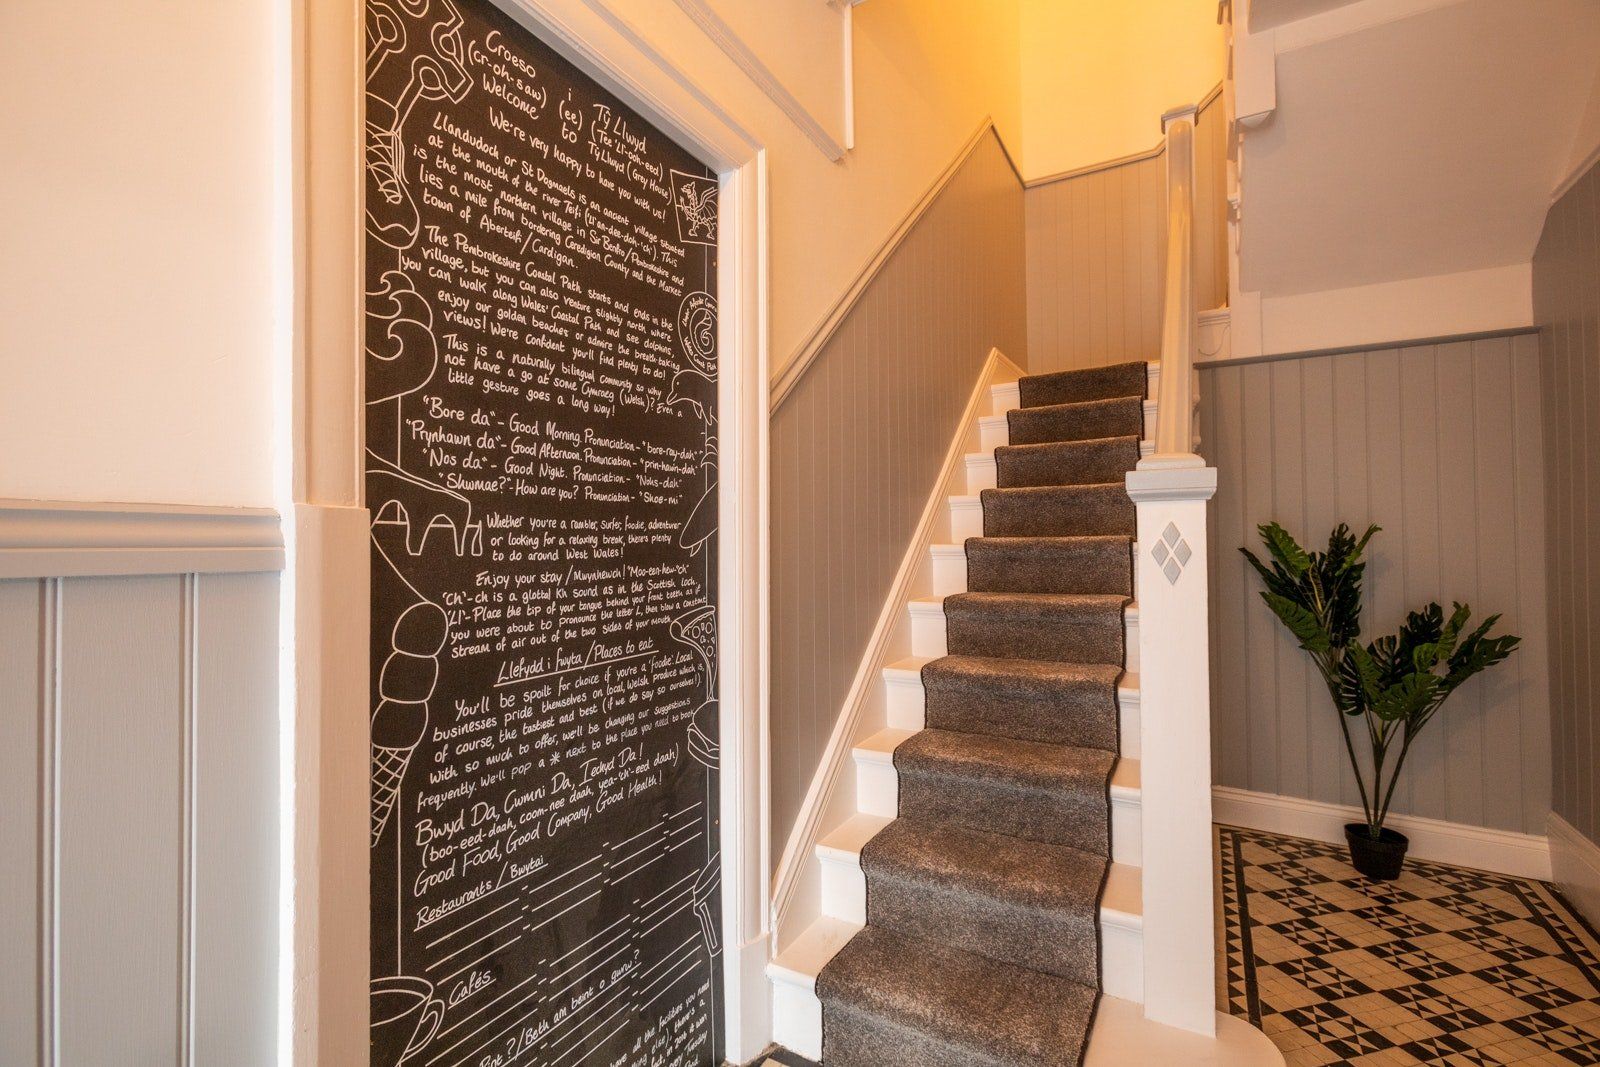 Croeso i Tŷ Llwyd
(cr-oh-saw) (ee) (Tee 'Ll'-ooh-eed)
Welcome to Tŷ Llwyd (Grey House)
We're very happy to have you with us!
Llandudoch or St Dogmaels is an ancient village situated
at the mouth of the river Teifi ('Ll'an-dee-doh-'ch'). This
is the most northern village in Sir Benfro/Pembrokeshire and
lies a mile from bordering Ceredigion County and the Market
town of Aberteifi/Cardigan.
The Pembrokeshire Coastal Path starts and ends in the
village, but you can also venture slightly north where
you can walk along Wales' Coastal Path and see dolphins,
enjoy our golden beaches or admire the breath-taking
views! We're confident you'll find plenty to do!
This is a naturally bilingual community so why
not have a go at some Cymraeg (Welsh)? Even a
little gesture goes a long way!
"Bore da" - Good Morning. Pronunciation - "bore-ray-dah"
"Prynhawn da" - Good Afternoon. Pronunciation - "prin-hawn-dah"
"Nos da" - Good Night. Pronunciation - "Nohs-dah"
"Shwmae?" - How are you? Pronunciation - "Shoe-mi"
Whether you're a rambler, surfer, foodie, adventurer
or looking for a relaxing break, there's plenty
to do around West Wales!
Enjoy your stay/Mwynhewch! "Moo-een-hew-'ch"
'Ch'-ch is a glottal Kh sound as in the Scottish loch.
'Ll'-Place the tip of your tongue behind your front teeth as if
you were about to pronounce the letter L, then blow a constant
stream of air out of the two sides of your mouth.
Llefydd i fwyta/Places to eat
You'll be spoilt for choice if you're a 'foodie'. Local
businesses pride themselves on local, Welsh produce which is,
of course, the tastiest and best (if we do say so ourselves!).
With so much to offer, we'll be changing our suggestions
frequently. We'll pop a * next to the place you need to book
Bwyd Da, Cwmni Da, Iechyd Da!
(boo-eed-daah, coom-nee daah, yea-'ch'-eed daah)
Good Food, Good Company, Good Health!
Restaurants/Bwytai
Cafés
Pint?/Beth am beint o gwrw?
have all the facilities you need
else), there's a
in 2016 it won
Tuesday
Wales Coast Path